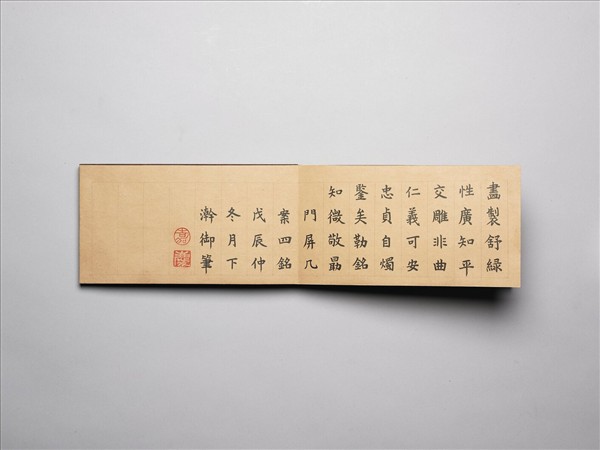 畫製舒綠
性廣知平
交雕非曲
仁義可安
忠貞自燭
鑒矣勒銘
知微敬勗
門屏几
案四銘
戊辰仲
冬月下
澣御筆